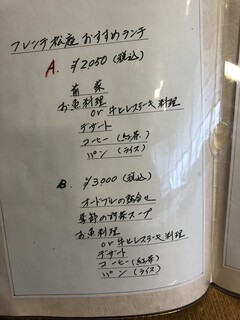 フレンチ松屋 おすすめランチ
A. ¥2050 (税込)
前菜
お魚料理
or 牛ヒレステーキ料理
デザート
コーヒー (紅茶)
パン (ライス)
B. ¥3000 (税込)
オードブルの盛合せ
季節の野菜スープ
お魚料理
or 牛ヒレステーキ料理
デザート
コーヒー (紅茶)
パン (ライス)